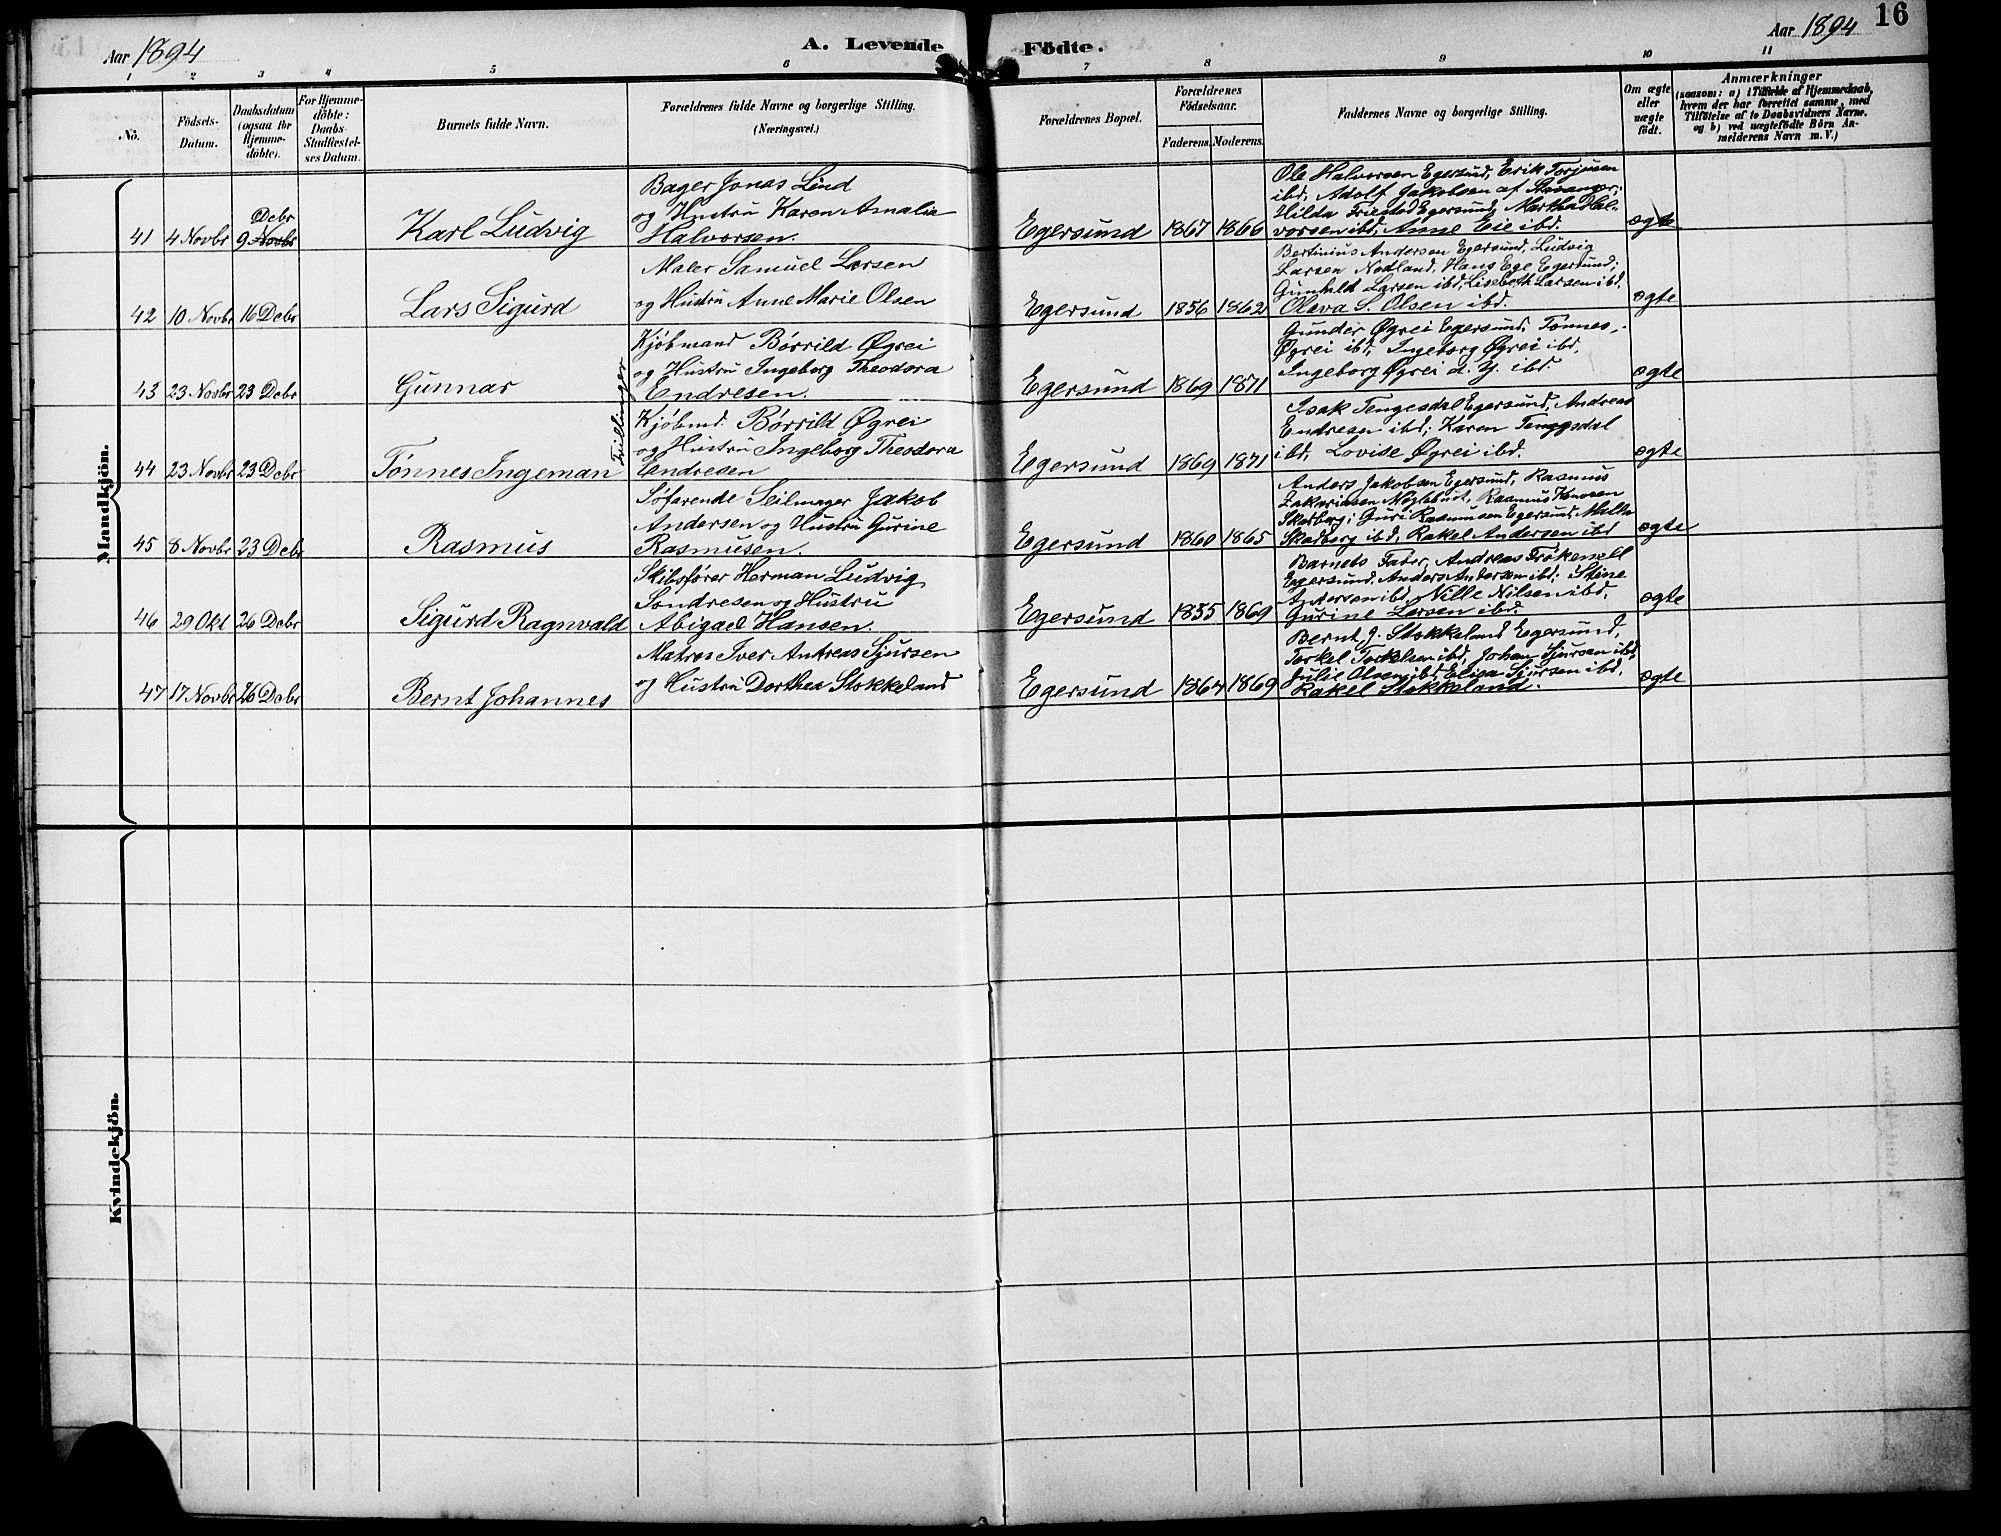 Aar 1894
A. Levende Födte.
Aar 1894
16
1 2 3 4 5 6 7 8 9 10 11
No.
Födsels-
Datum.
Daabsdatum
(ogsaa for
Hjemme-
döbte).
For Hjemme-
döbte:
Daabs-
Stadfæstel-
ses Datum.
Barnets fulde Navn.
Forældrenes fulde Navne og borgerlige Stilling.
(Næringsvei.)
Forældrenes Bopæl.
Forældrenes
Födselsaar.
Faderens. Moderens.
Faddernes Navne og borgerlige Stilling.
Om ægte
eller
uægte
födt.
Anmærkninger
(saasom: a) i Tilfælde af Hjemmedaab,
hvem der har forrettet samme, med
Tilföielse af to Daabsvidners Navne,
og b) ved uægtefödte Börn An-
melderens Navn m. V.)
Mandkjön.
41 4 Novbr 9 Novbr Debr
Karl Ludvig
Bager Jonas Lind
og Hustru Karen Amalia
Halvorsen.
Egersund 1867 1866
Ole Halvorsen Egersund, Erik Torjusen
ibd, Adolf Jakobsen af Stavanger;
Hilda Friestad Egersund, Martha Hal-
vorsen ibd, Anne Eie ibd.
ægte
42 10 Novbr 16 Debr
Lars Sigurd
Maler Samuel Larsen
og Hustru Anne Marie Olsen
Egersund 1856 1862
Bertinius Andersen Egersund, Ludvig
Larsen Nodland, Hans Ege Egersund;
Gunhild Larsen ibd, Lisebeth Larsen ibd.
Olava S. Olsen ibd.
ægte
43 23 Novbr 23 Debr
Gunnar
Tvillinger
Kjøbmand Børrild Øgrei
og Hustru Ingeborg Theodora
Endresen.
Egersund 1869 1871
Gunder Øgrei Egersund, Tønnes
Øgrei ibd; Ingeborg Øgrei ibd,
Ingeborg Øgrei d. y. ibd.
ægte
44 23 Novbr 23 Debr
Tønnes Ingeman
Kjøbmd. Børrild Øgrei
og Hustru Ingeborg Theodora
Endresen
Egersund 1869 1871
Isak Tengesdal Egersund, Andreas
Endresen ibd; Karen Tenggsdal
ibd, Lovise Øgrei ibd.
ægte
45 8 Novbr 23 Debr
Rasmus
Søfarende Seilmager Jakob
Andersen og Hustru Gurine
Rasmusen.
Egersund 1860 1865
Anders Jakobsen Egersund, Rasmus
Zakariasen Møglebust, Rasmus
Skadberg; Guri Rasmusen Egersund,
Skadberg ibd, Rakel Andersen ibd
ægte
46 29 Okt 26 Debr
Sigurd Ragnvald
Skibsfører Herman Ludvig
Søndresen og Hustru
Abigael Hansen.
Egersund 1855 1869
Barnets Fader, Andreas
Egersund, Anders Andersen ibd; Stine
Andersen ibd, Nille Nilsen ibd,
Gurine Larsen ibd.
ægte
47 17 Novbr 26 Debr
Bernt Johannes
Matros Iver Antreas Sjursen
og Hustru Dorthea Stokkeland
Egersund 1864 1869
Bernt J. Stokkeland Egersund,
Torkel Torkelsen ibd, Johan Sjursen ibd,
Julie Olsen ibd, Elisa Sjursen ibd,
Rakel Stokkeland.
ægte
Kvindekjön.